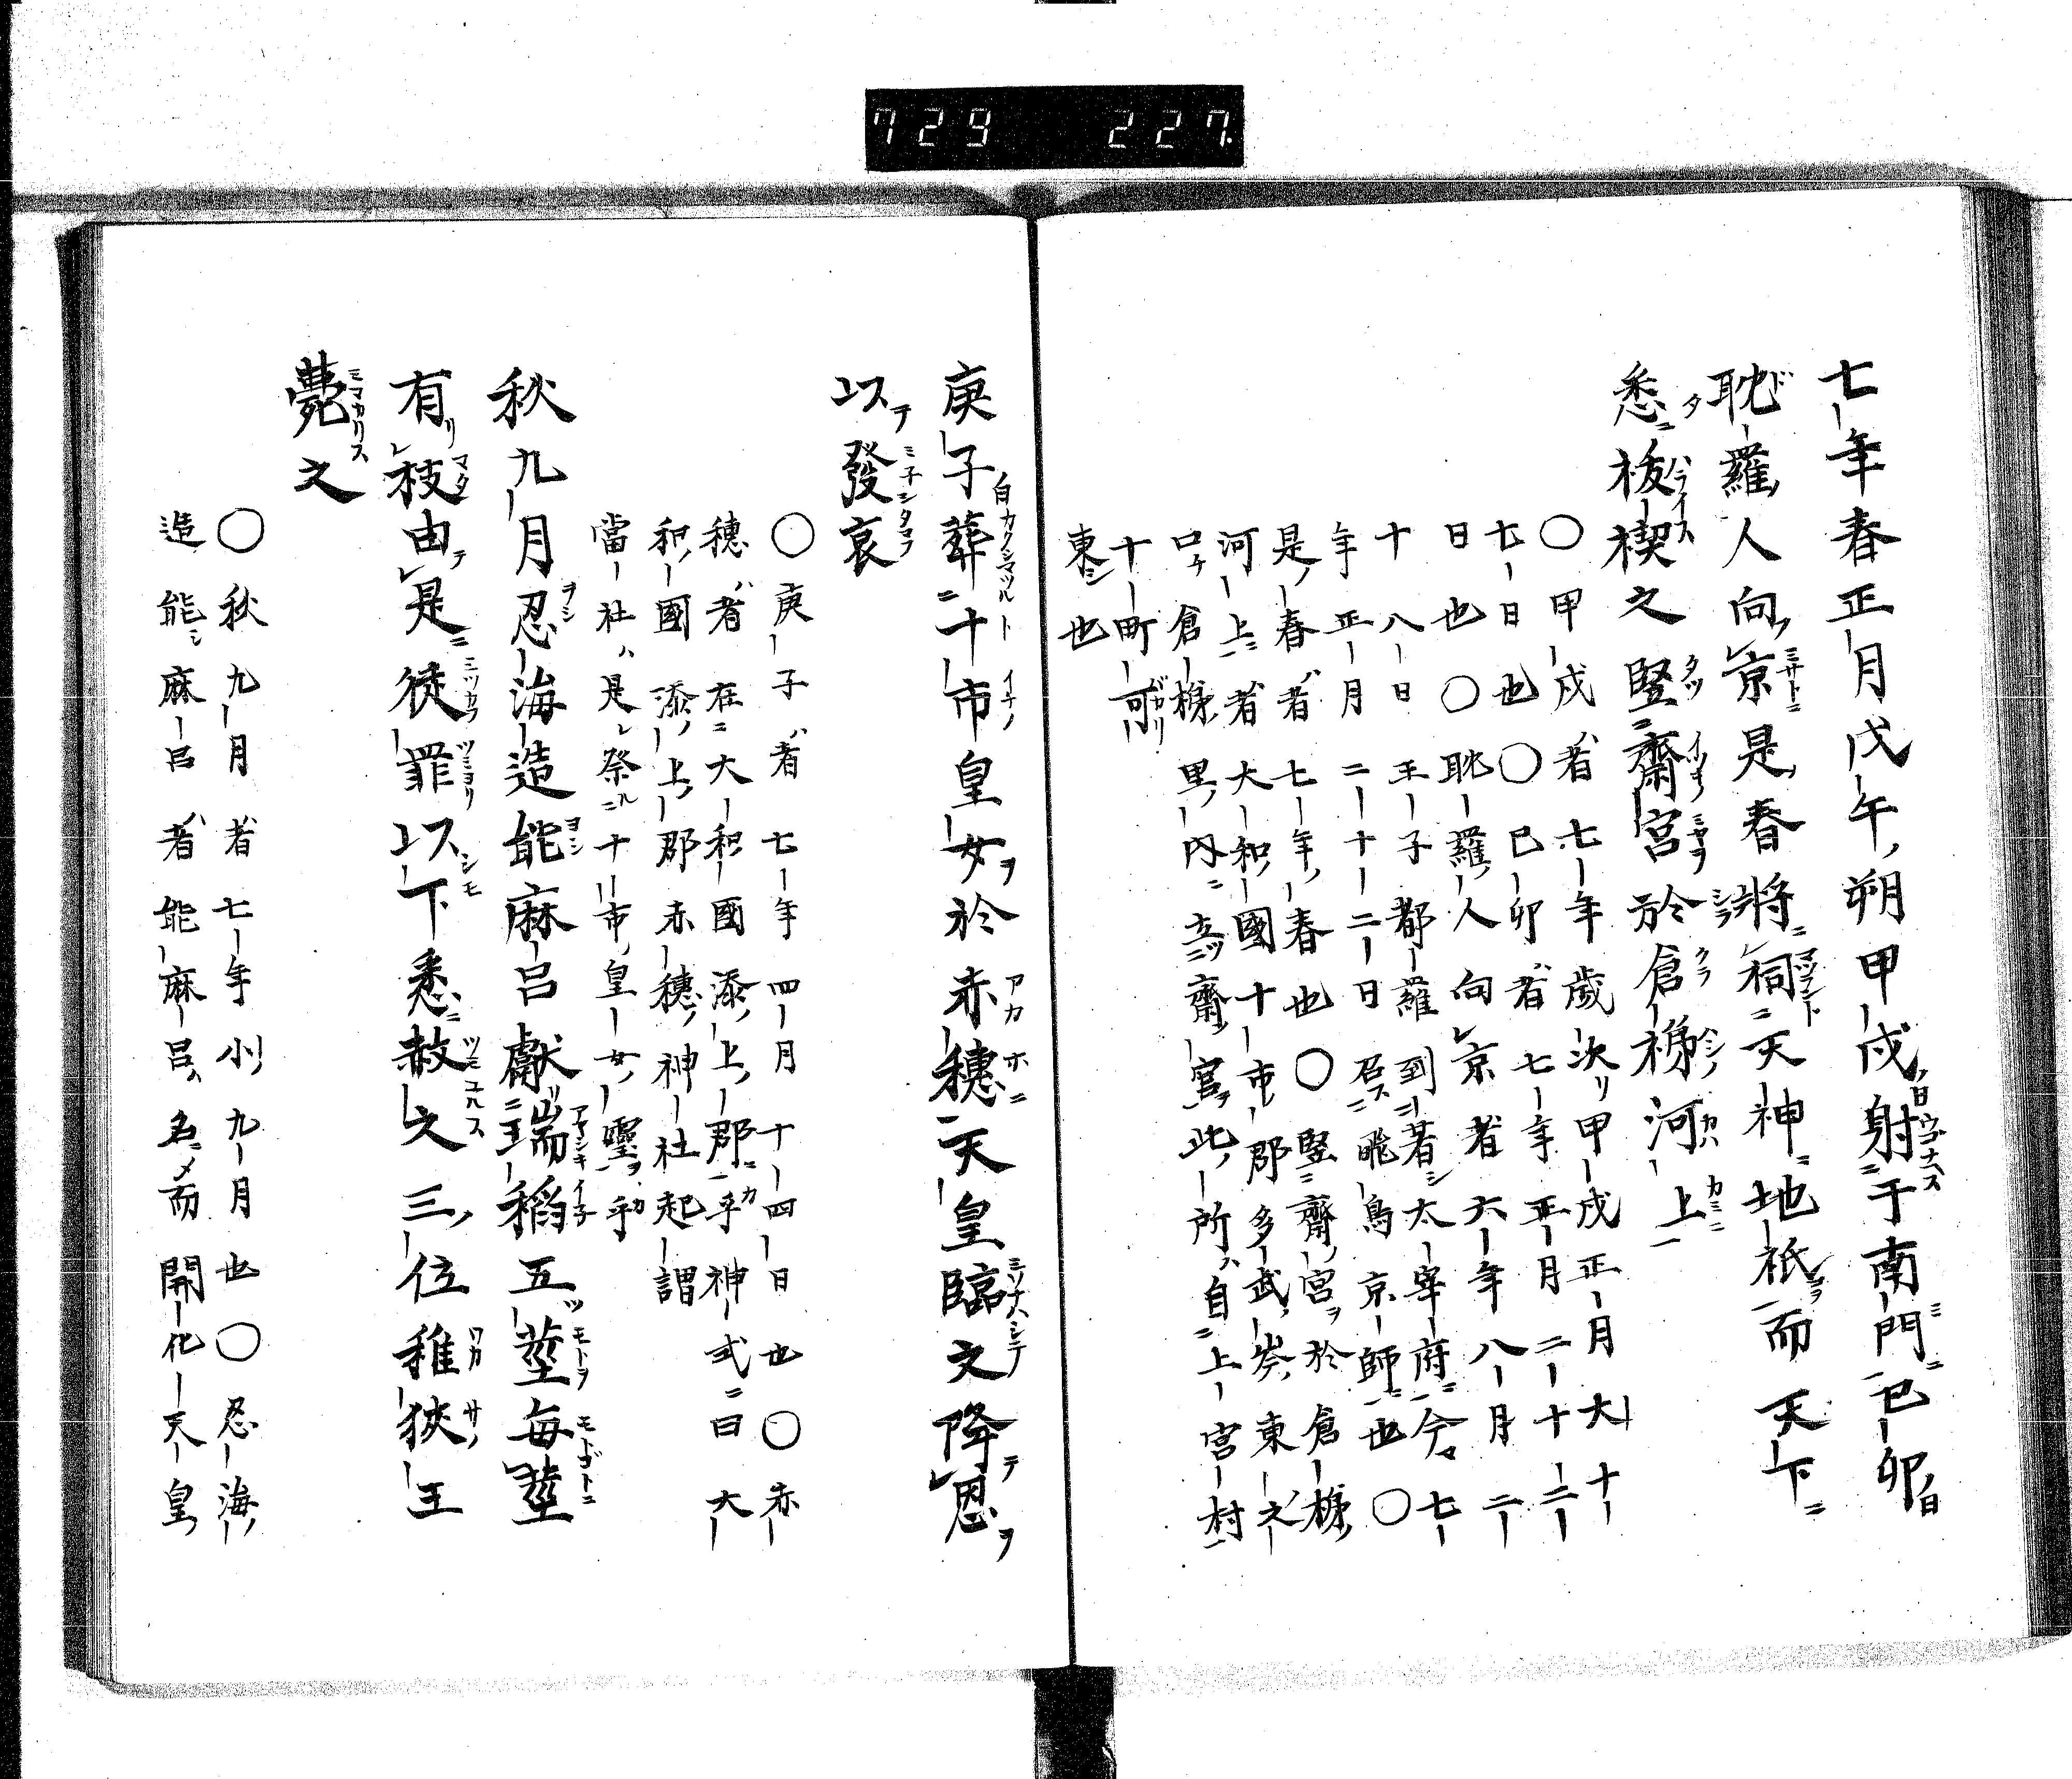 729 227.
七年春正月戊午朔甲戌射于南門己卯
耽羅人向京是春將祠天神地祇而天下
悉祓禊之竪齋宮於倉梯河上
〇甲戌者七年歳次甲戌正月大十
七日也〇己卯者七年正月二十二
日也〇耽羅人向京者六年八月二
十八日王子都羅到著太宰府今七
年正月二十二日召飛鳥京師也〇
是春者七年春也〇竪齋宮於倉梯
河上者大和國十市郡多武岑東之
口倉梯里内立齋宮此所自上宮村
十町可
東也
庚子葬十市皇女於赤穗天皇臨之降恩
以發哀
〇庚子者七年四月十四日也〇赤
穗者在大和國添上郡乎神式曰大
和國添上郡赤穗神社起謂
當社是祭十市皇女靈乎
秋九月忍海造能麻呂獻瑞稻五莖毎莖
有枝由是徒罪以下悉赦之三位稚狹王
薨之
〇秋九月者七年小九月也〇忍海
造能麻呂者能麻呂名而開化天皇